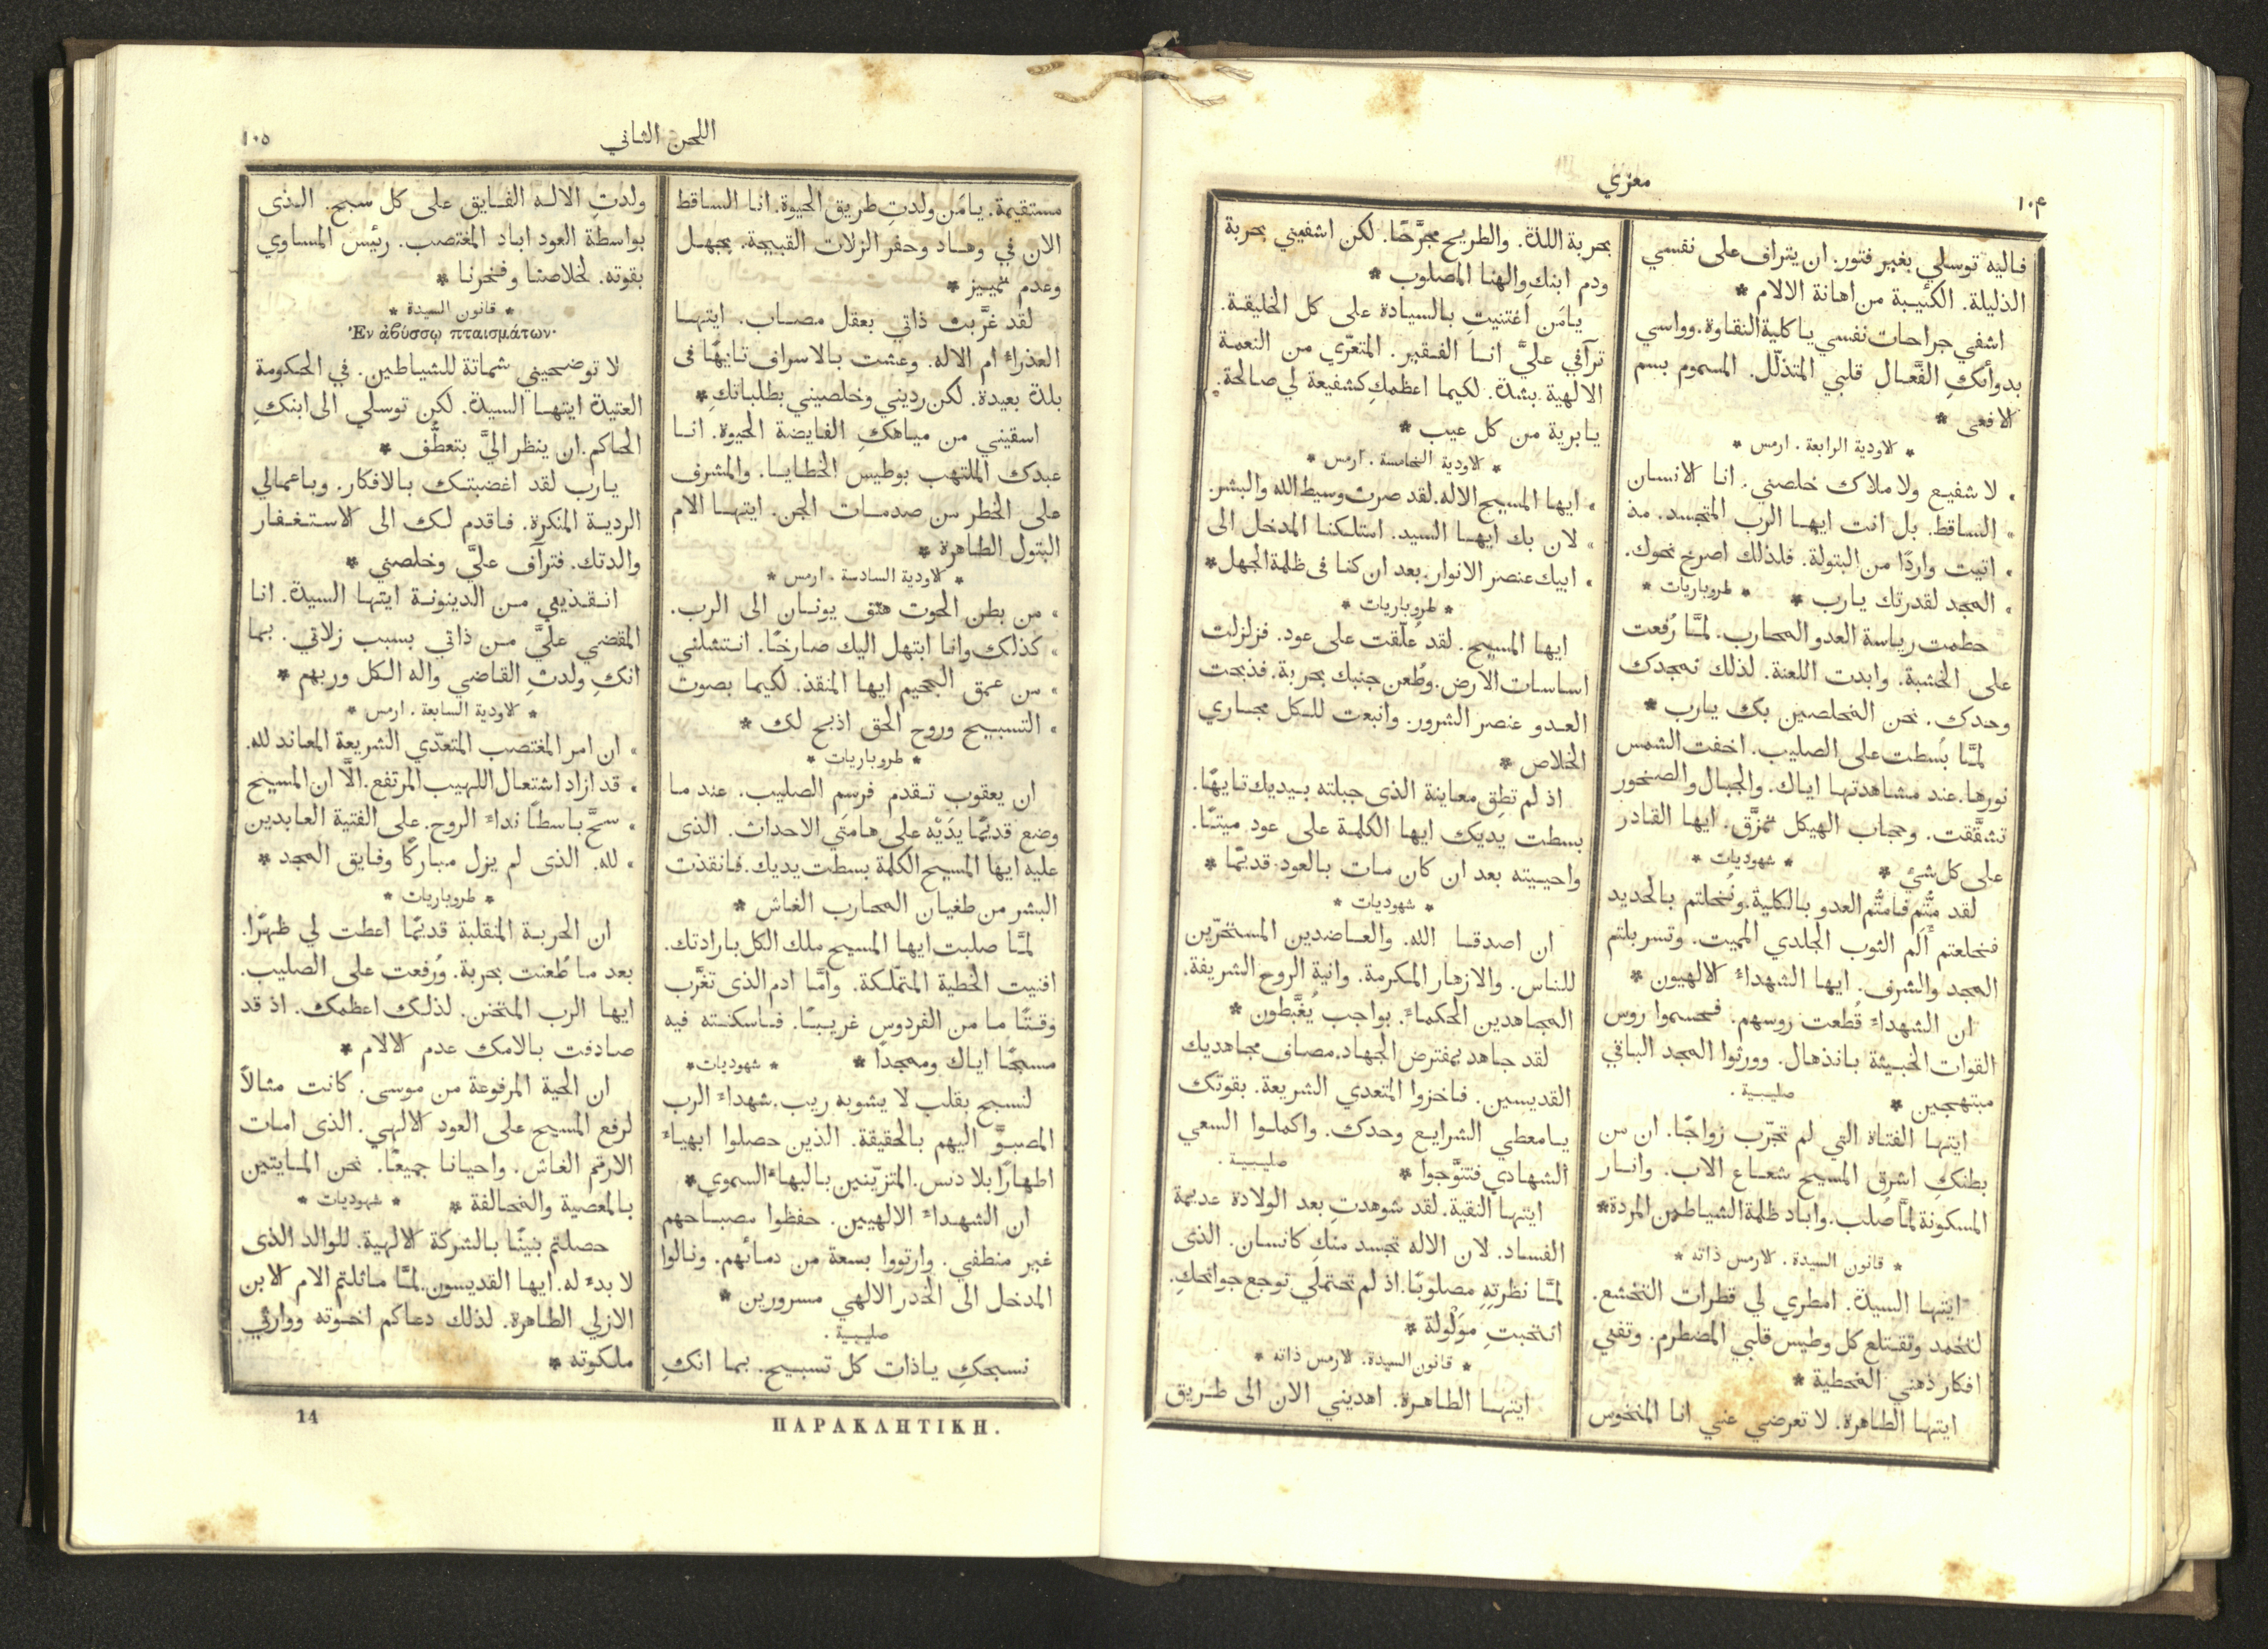 معزي
١٠٤
فاليه توسلي بغير فتور. ان يتراف على نفسي
الذليلة. الكئيبة من اهانة الالام *
اشفي جراحات نفسي ياكلية النقاوة. وواسي
بدوائكِ الفَّعال قلبي المتذلّل. المسموم بسم
الافعى *
* لاودية الرابعة. ارمس *
» لا شفيع ولا ملاك خلصني. انا الانسان
» الساقط. بل انت ايها الرب المتجسد. مذ
» اتيت واردًا من البتولة. فلذلك اصرخ نحوك.
» المجد لقدرتك يارب * * طروباريات *
حطمت رياسة العدو المحارب. لمَّا رُفعت
على الخشبة. وابدت اللعنة. لذلك نمجدك
وحدك. نحن المخلصين بك يارب *
لمَّا بُسطت على الصليب. اخفت الشمس
نورها. عند مشاهدتها اياك. والجبال والصخور
تشقَّقت. وحجاب الهيكل تمزَّق. ايها القادر
على كل شيٍ * * شهوديات *
لقد مُتُّم فامتُّم العدو بالكلية. ونُحلتم بالحديد
فخلعتم أَلَم الثوب الجلدي المميت. وتسربلتم
المجد والشرف. ايها الشهداء الالهيون *
ان الشهداء قُطعت روسهم. فحسموا روس
القوات الخبيثة بانذهال. وورثوا المجد الباقي
مبتهجين * صليبية.
ايتها الفتاة التي لم تجرّب زواجًا. ان من
بطنكِ اشرق المسيح شعاع الاب. وانار
المسكونة لمَّا صُلب. واباد ظلمة الشياطين المردة*
* قانون السيدة. لارمس ذاته *
ايتها السيدة. امطري لي قطرات التخشع.
لتخمد وتقتلع كل وطيس قلبي المضطرم. وتفني
افكار ذهني المخطية *
ايتها الطاهرة. لا تعرضي عني انا المنخوس
بحربة اللذة. والطريح مجرَّحًا. لكن اشفيني بحربة
ودم ابنكِ والهنا المصلوب *
يامَن اعتنيت بالسيادة على كل الخليقة.
ترآفي عليَّ انا الفقير. المتعرّي من النعمة
الالهية بشدة. لكيما اعظمكِ كشفيعة لي صالحة.
يابرية من كل عيب *
* لاودية الخامسة. ارمس *
» ايها المسيح الاله. لقد صرت وسيط الله والبشر.
» لان بك ايها السيد. استلكنا المدخل الى
» ابيك عنصر الانوار. بعد ان كنا فى ظلمة الجهل*
* طروباريات *
ايها المسيح. لقد عُلّقت على عود. فزلزلت
اساسات الارض. وطُعن جنبك بحربة. فذبحت
العدو عنصر الشرور. وانبعت للكل مجاري
الخلاص *
اذ لم تطِق معاينة الذي جبلته بيديك تايهًا.
بسطت يديك ايها الكلمة على عود. ميتًا.
واحييته بعد ان كان مات بالعود قديمًا *
* شهوديات *
ان اصدقا الله. والعاضدين المستحَرّين
للناس. والازهار المكرمة. وانية الروح الشريفة.
المجاهدين الحكماء. بواجب يُغَبَّطون *
لقد جاهد بمفترض الجهاد. مصاف مجاهديك
القديسين. فاخزوا المتعدي الشريعة. بقوتك
يامعطي الشرايع وحدك. واكملوا السعي
الشهادي فتتوَّجوا * صليبية.
ايتها النقية. لقد شوهدتِ بعد الولادة عديمة
الفساد. لان الاله تجسد منكِ كانسان. الذى
لمَّا نظرتِهِ مصلوبًا. اذ لم تحتملي توجع جوانحكِ.
انتحبتِ مولْولة *
* قانون السيدة. لارمس ذاته *
ايتها الطاهرة. اهديني الان الى طريق
اللحن الثاني
١٠٥
مستقيمة. يامَن ولدتِ طريق الحيوة. انا الساقط
الان في وهاد وحفر الزلات القبيحة. بجهل
وعدم تمييز *
لقد غرَّبت ذاتي بعقل مصاب. ايتها
العذراء ام الاله. وعشت بالاسراف تايهًا فى
بلدة بعيدة. لكن رديني وخلصيني بطلباتكِ*
اسقيني من مياهكِ الفايضة الحيوة. انا
عبدك الملتهب بوطيس الخطايا. والمشرف
على الخطر من صدمات الجن. ايتها الام
البتول الطاهرة *
* لاودية السادسة. ارمس *
» من بطن الحوت هتف يونان الى الرب.
» كذلك وانا ابتهل اليك صارخًا. انتشلني
» من عمق الجحيم ايها المنقذ. لكيما بصوت
» التسبيح وروح الحق اذبح لك *
* طروباريات *
ان يعقوب تقدم فرسم الصليب. عند ما
وضع قديمًا يدَيْه على هامتَي الاحداث. الذى
عليه ايها المسيح الكلمة بسطت يديك. فانقذت
البشر من طغيان المحارب الغاش *
لمَّا صلبت ايها المسيح ملك الكل بارادتك.
افنيت الخطية المتملّكة. وامَّا ادم الذى تغرَّب
وقتًا ما من الفردوس غريبًا. فاسكنته فيه
مسبحًا اياك وممجدًا * * شهوديات*
لنسبح بقلب لا يشوبه ريب. شهداء الرب
المصبوَّ اليهم بالحقيقة. الذين حصلوا ابهياء
اطهارًا بلا دنس. المتزيّنين بالبهاء السموي*
ان الشهداء الالهيين. حفظوا مصباحهم
غير منطفي. وارتووا بسعة من دمائهم. ونالوا
المدخل الى الخدر الالهي مسرورين *
صليبية.
نسبحكِ ياذات كل تسبيح. بما انكِ
ولدتِ الاله الفايق على كل سبح. الذى
بواسطة العود اباد المغتصب. رئيس المساوي
بقوته. لخلاصنا وفخرنا *
* قانون السيدة *
Ἐν ἀβύσσῳ πταισμάτων·
لا توضحيني شماتة للشياطين. في الحكومة
العتيدة ايتها السيدة. لكن توسلي الى ابنكِ
الحاكم. ان ينظر اليَّ بتعطُّف *
يارب لقد اغضبتك بالافكار. وباعمالي
الردية المنكرة. فاقدم لك الى الاستغفار
والدتك. فترآف عليَّ وخلصني *
انقذيني من الدينونة ايتها السيدة. انا
المقضي عليَّ من ذاتي بسبب زلاتي. بما
انكِ ولدتِ القاضي واله الكل وربهم *
* لاودية السابعة. ارمس *
» ان امر المغتصب المتعدّي الشريعة المعاند لله.
» قد ازاد اشتعال اللهيب المرتفع. الَّا ان المسيح
» سحَّ باسطًا نداءَ الروح. على الفتية العابدين
» لله. الذى لم يزل مباركًا وفايق المجد *
* طروباريات *
ان الحربة المتقلبة قديمًا اعطت لي ظهرًا.
بعد ما طُعنت بحربة. ورُفعت على الصليب.
ايها الرب المتحنن. لذلك اعظمك. اذ قد
صادفت بالامك عدم الالام *
ان الحية المرفوعة من موسى. كانت مثالاً
لرفع المسيح على العود الالهي. الذى امات
الارقم الغاش. واحيانا جميعًا. نحن المايتين
بالمعصية والمخالفة * * شهوديات *
حصلتم بنينًا بالشركة الالهية. للوالد الذى
لا بدء له. ايها القديسون. لمَّا ماثلتم الام الابن
الازلي الطاهرة. لذلك دعاكم اخوته ووارثي
ملكوته *
ΠΑΡΑΚΛΗΤΙΚΗ.
14